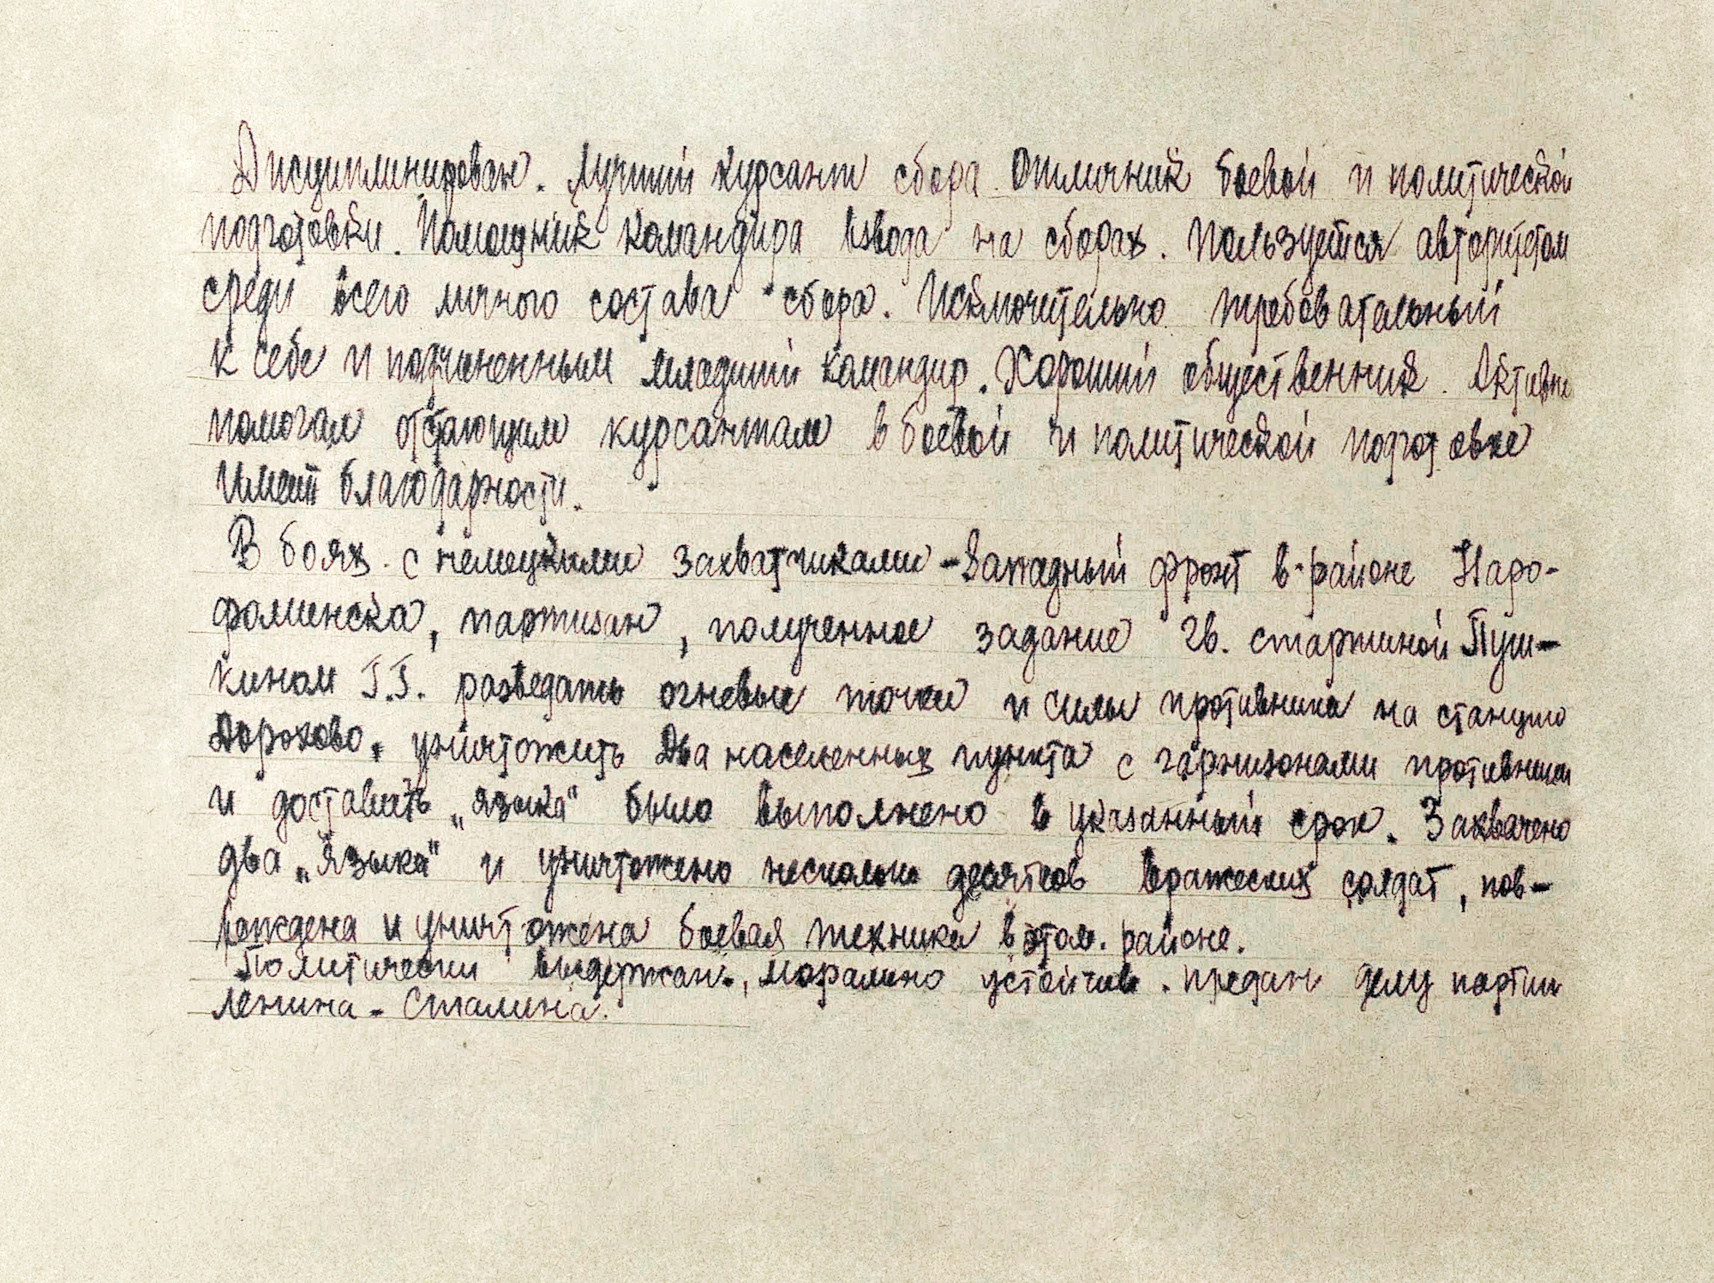 Дисциплинирован. Лучший курсант сбора. Отличник боевой и политической
подготовки. Помощник командира взвода на сборах. Пользуется авторитетом
среди всего личного состава сбора. Исключительно требовательный
к себе и подчиненным младший командир. Хороший общественник. Активно
помогал отстающим курсантам в боевой и политической подготовке
Имеет благодарности.
В боях с немецкими захватчиками - Западный фронт в районе Наро-
фоминска, партизан, полученное задание гв. старшиной Пуш-
киным Г.Г. разведать огневые точки и силы противника на станцию
Дорохово, уничтожить два населенных пункта с гарнизонами противника
и доставить „языка" было выполнено в указанный срок. Захвачено
два „языка" и уничтожено несколько десятков вражеских солдат, пов-
реждена и уничтожена боевая техника в этом. районе.
Политически выдержан, морально устойчив. Предан делу партии
Ленина - Сталина.